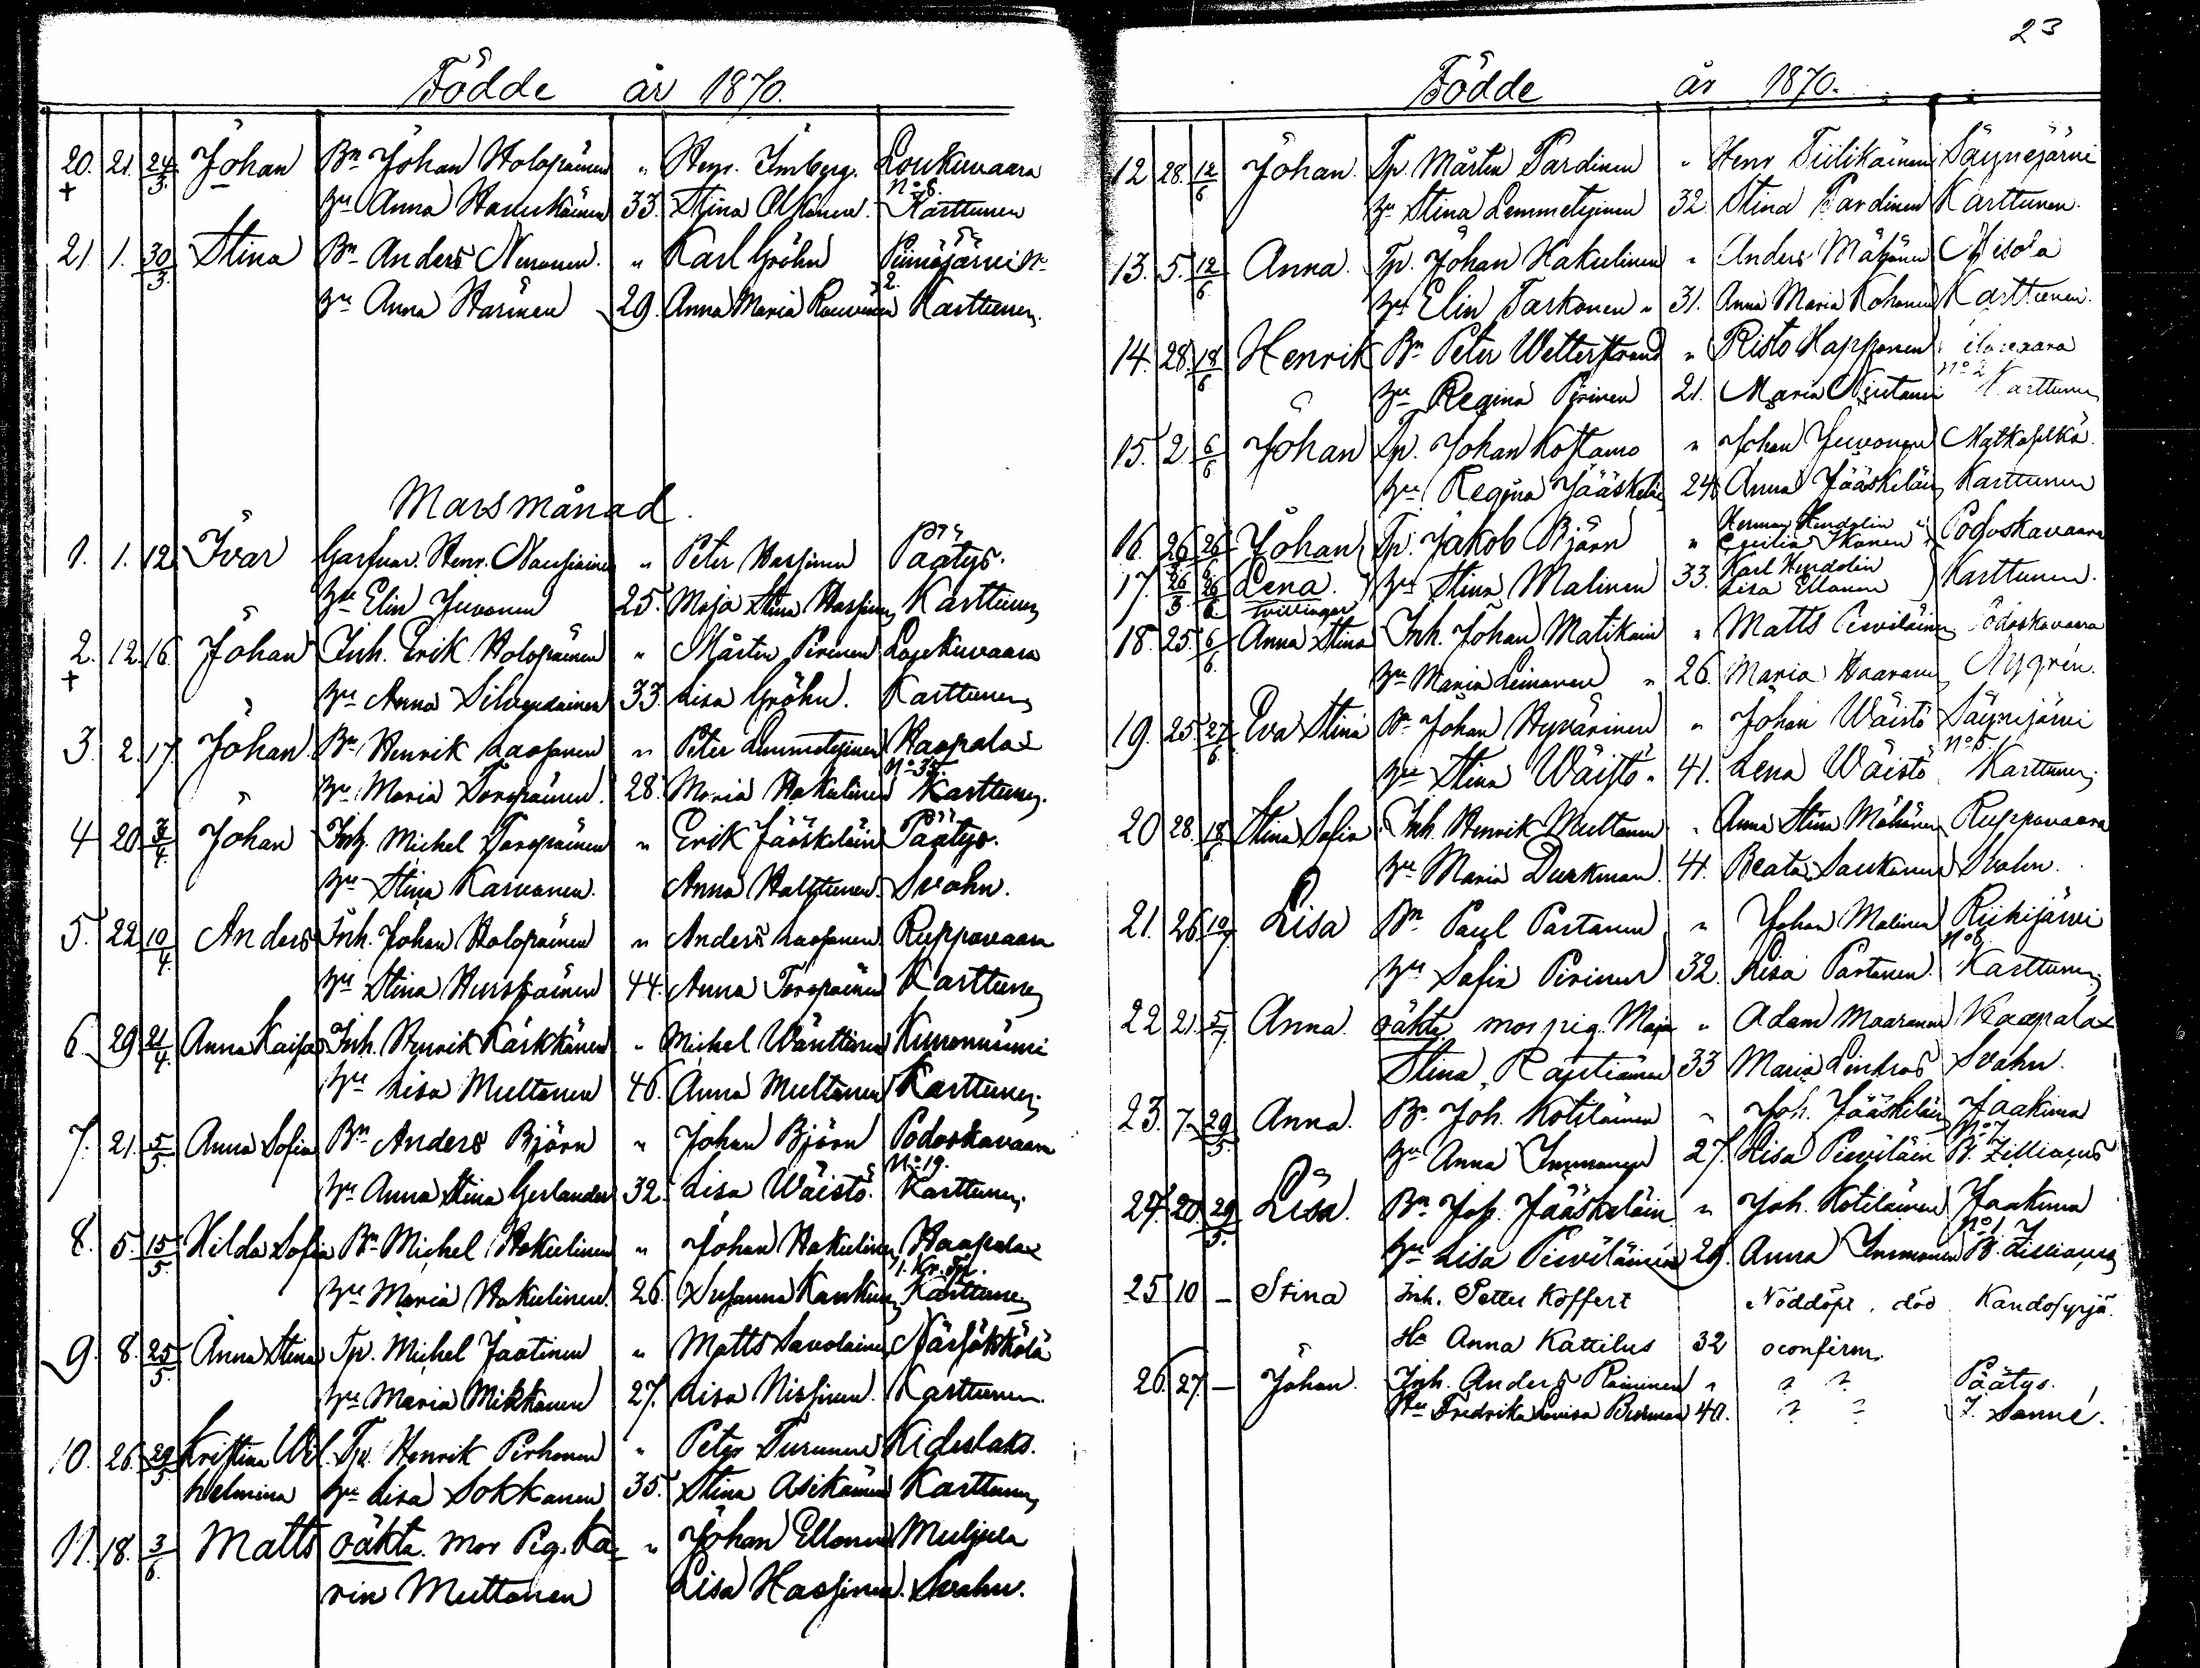 Födde år 1870.
20. 21. 24/3. Johan Bn Johan Holopainen " Henr. Imberg. Loukuvaara
No 8.
+ hu Anna Hanukainen 33. Stina Asikanen. Karttunen
21. 1. 30/3. Stina Bn Anders Nenonen. " Karl Gröhn
2.
hu Anna Harinen 29. Anna Maria Karttunen
Marsmånad.
1. 1. 12. Ivar Henr. " Peter Hassinen Päätys.
hu Elin Juvonen 25. Maja Stina Hassinen Karttunen
2. 12. 16. Johan Inh. Erik Holopainen " Mårten Pirinen
+ hu Anna Silvendoinen 33. Lisa Gröhn. Karttunen
3. 2. 17. Johan Bn Henrik Laasonen " Peter Lemmetyinen Haapalax
No 35.
hu Maria Toropainen. 28. Maria Hakulinen Karttunen.
4 20 3/4. Johan Inh. Michel Toropainen " Erik Jääskeläin Päätys.
hu Stina Karvonen. Anna Halttunen. Svahn.
5. 22 10/4. Anders Inh. Johan Holopainen " Anders Laasonen Ruppovaara
hu Stina Hurskainen 44. Anna Toropainen Karttunen
6. 29 21/4. Anna Kaisa Inh. Henrik Kärkkänen " Michel Wänttinen Kunonniemi
hu Lisa Multanen 46. Anna Multanen Karttunen
7. 21. 5/5. Anna Sofia Bn Anders Björn " Johan Björn Podoskavaara
No 19.
hu Anna Stina Gerlander 32. Lisa Wäistö. Karttunen.
8. 5. 15/5. Hilda Sofia Bn Michel Hakulinen " Johan Hakulinen Haapalax
hu Maria Hakulinen. 26. Susanna Kankun Karttunen
9. 8. 25/5. Anna Stina Tp. Michel Jaatinen " Matts Savolainen Närsäkkälä
hu Maria Mikkänen 27. Lisa Nissinen. Karttunen.
10. 26. 29/5. Kristina Wil Tp. Henrik Pirhonen " Peter Turunen Kideslaks.
helmina hu Lisa Sokkanen 35. Stina Asikainen Karttunen
11. 18. 3/6. Matts oäkta. mor Pig. Ka- " Johan Ellonen Muljula
rin Muttonen Lisa Hassinen. Svahn.
23
Födde år 1870.
12 28. 12/6 Johan. Tp. Mårten Pardinen " Henr Tiilikainen Säynejärvi
hu Stina Lemmetyinen 32 Stina Pardinen Karttunen.
13. 5. 12/6 Anna. Tp. Johan Hakulinen " Anders Mähönen Misola
hu Elin Tarkonen " 31. Anna Maria Kohonen Karttunen.
14. 28. 18/6 Henrik Bn Peter Wetterstrand " Risto Happonen
No 2
hu Regina Pirinen 21. Maria Karttunen
15. 2. 6/6 Johan Tp. Johan Kostamo " Johan Juvonen Matkaselkä.
hu Regina Jääskeläi 24. Anna Jääskeläin Karttunen
16. 26 26/6 Johan Tp. Jakob Björn " Herman Hendolin Podoskavaara
Cecilia Ikonen
17. 26/3. 26/6. Lena. hu Stina Malinen 33. Karl Hendolin Karttunen.
Tvillingar Lisa Ellonen
18. 25. 6/6. Anna Stina Inh. Johan Matikain " Matts Peiviläinen Podoskavaara
hu Maria Leinonen " 26. Maria Haaranen Nygrén.
19. 25. 27/6. Eva Stina Bn Johan Hyvärinen " Johan Wäistö Säynejärvi
No 5.
hu Stina Wäistö. 41. Lena Wäistö Karttunen
20 28. 18/6. Stina Sofia Inh. Henrik Multanen " Anna Stina Mähönen Ruppovaara
hu Maria Durkman. 41. Beata Saukkonen Svahn.
21. 26. 10/7 Lisa Bn Paul Partanen " Johan Malinen Riihijärvi
No 8.
hu Sofia Pirinen 32. Lisa Partanen. Karttunen
22 21. 5/7. Anna. oäkta mor pig. Maja " Adam Maaranen Haapalax
Stina Rautiainen 33 Maria Lindros Svahn.
23. 7. 29/5. Anna. Bn Joh. Kotilainen " Joh. Jääskeläin Jaakima
No 7.
hu Anna Immonen 27. Lisa Peiviläin B. Zilliacus
24. 20. 29/5. Lisa. Bn Joh. Jääskeläin " Joh. Kotilainen Jaakima
No 1. 7
hu Lisa Peiviläinen 29. Anna Immonen B. Zilliacus
25 10 – Stina Inh. Petter Koffert Nöddöpt, död. Kandosyrjä.
Hu Anna Kattilus 32 oconfirm.
26. 27. – Johan. Inh. Anders Räininen " ? ? Päätys.
Hu Fredrika Lovisa Burman 40. ? ?